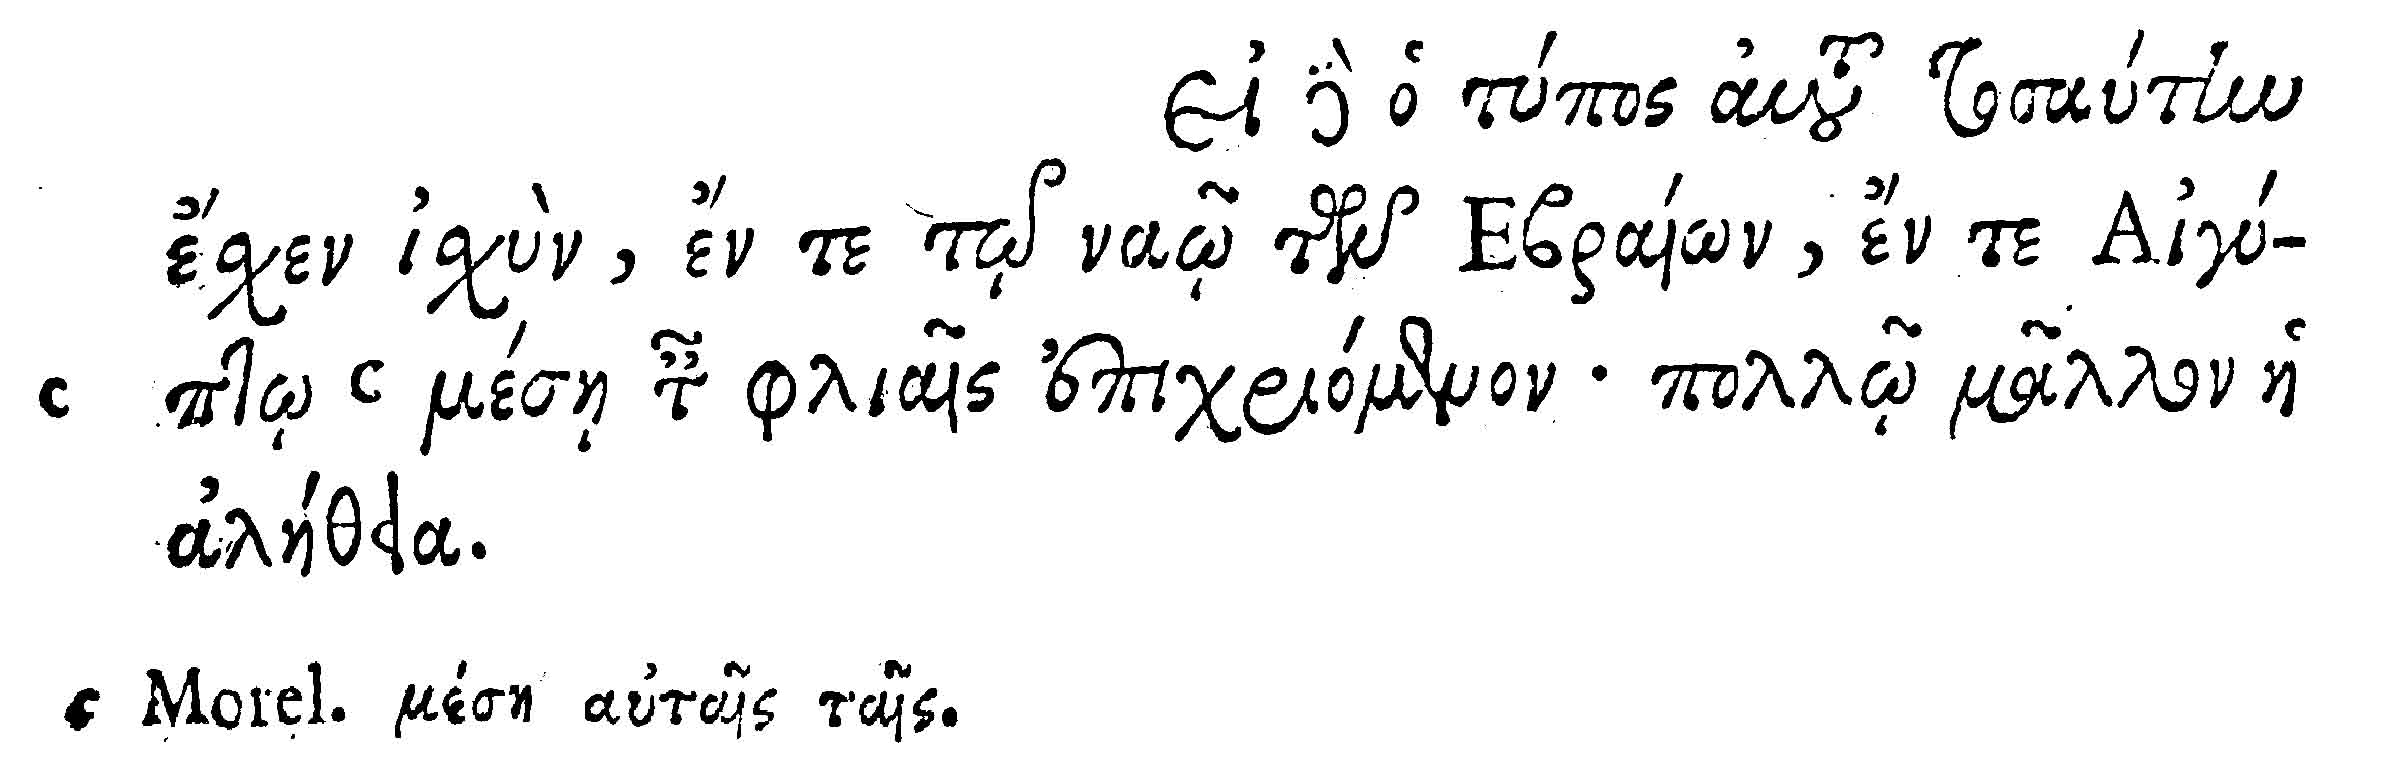 Εἰ δὲ ὁ τύπος αὐτοῦ τοσαύτην
ἔχεν ἰσχὺν, ἔν τε τῷ ναῷ τῶν Εβραίων, ἔν τε Αἰγύ-
c πτῳ c μέσῃ ταῖς φλιαῖς ἐπιχριόμενον · πολλῷ μᾶλλον ἡ
ἀλήθεια.
c Morel. μέση αὐταῖς ταῖς.